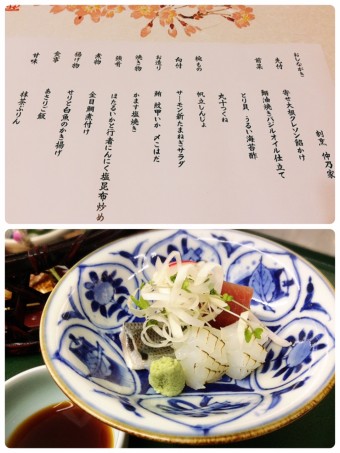 おしながき
割烹 仲乃家
先付
寄せ大根クレソン餡かけ
前菜
鯛油焼きバジルオイル仕立て
とり貝 うるい海苔酢
丸十つくね
椀もの
帆立しんじょ
向付
サーモン新たまねぎサラダ
お造り
鮪 紋甲いか 〆こはだ
焼き物
かます塩焼き
強肴
ほたるいかと行者にんにく塩昆布炒め
煮物
金目鯛煮付け
揚げ物
せりと白魚のかき揚げ
食事
あさりご飯
甘味
抹茶ぷりん